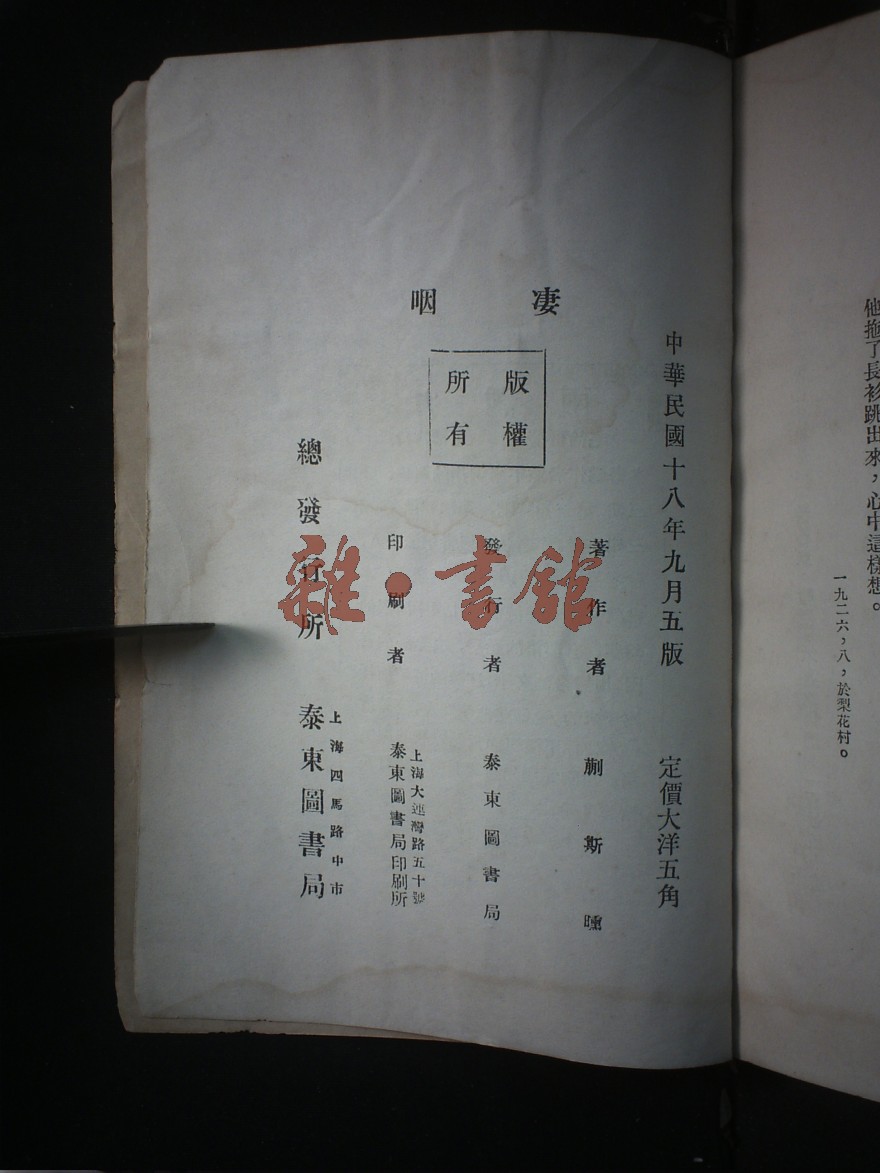 他拖了長衫跳出來，心中這樣想。
一九二六，八，於梨花村。
凄咽
版權所有
中華民國十八年九月五版　定價大洋五角
著作者　蒯斯曛
發行者　泰東圖書局
印刷者　上海大連灣路五十號
泰東圖書局印刷所
總發行所　上海四馬路中市
泰東圖書局
雜·書館